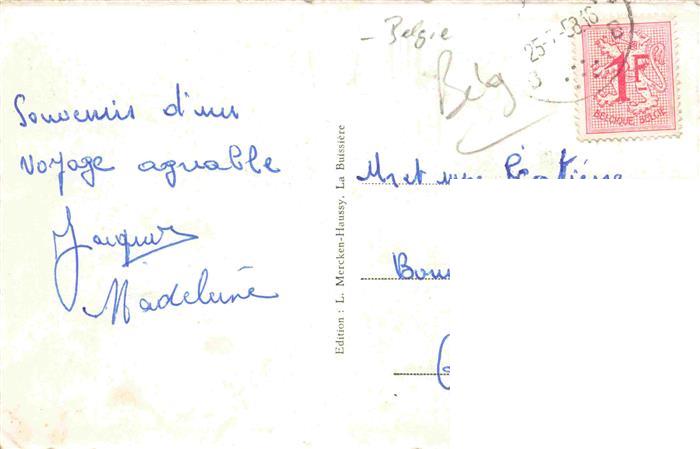 - Belgie
Belg
25-7-58 16
1F
BELGIQUE-BELGIE
Souvenir d'un
voyage agréable
Jacques
Madeleine
Edition : L. Mercken-Haussy, La Buissière
Mr et Mme